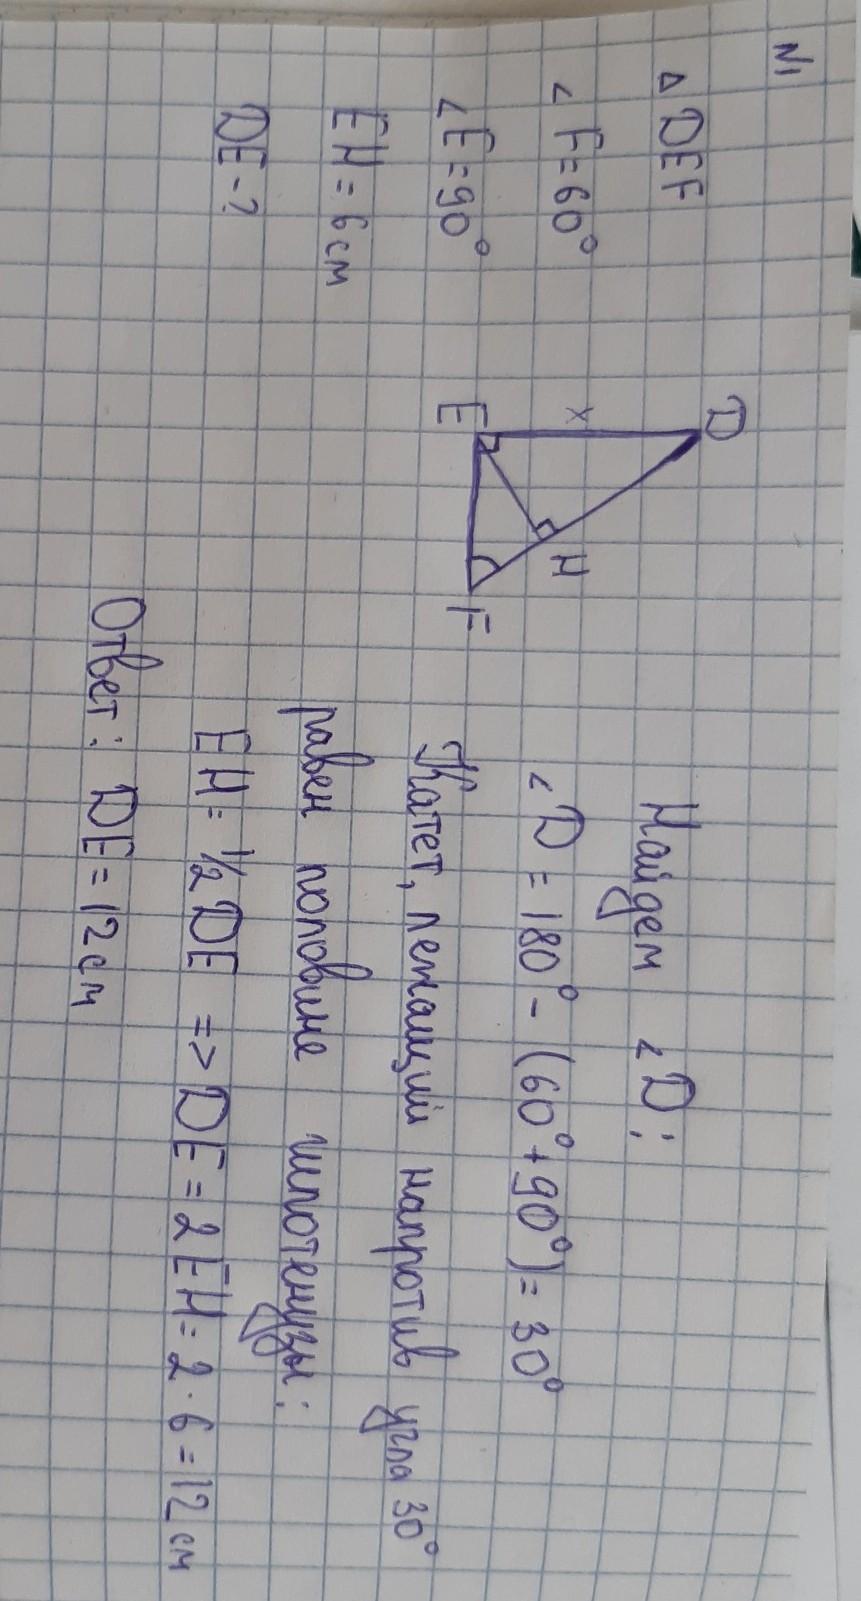 N1
△ DEF
∠ F = 60°
∠ E = 90°
EH = 6 см
DE - ?
D
x
E
H
F
Найдем ∠D:
∠D = 180° - (60° + 90°) = 30°
Катет, лежащий напротив угла 30°
равен половине гипотенузы:
EH = 1/2 DE => DE = 2EH = 2 · 6 = 12 см
Ответ: DE = 12 см